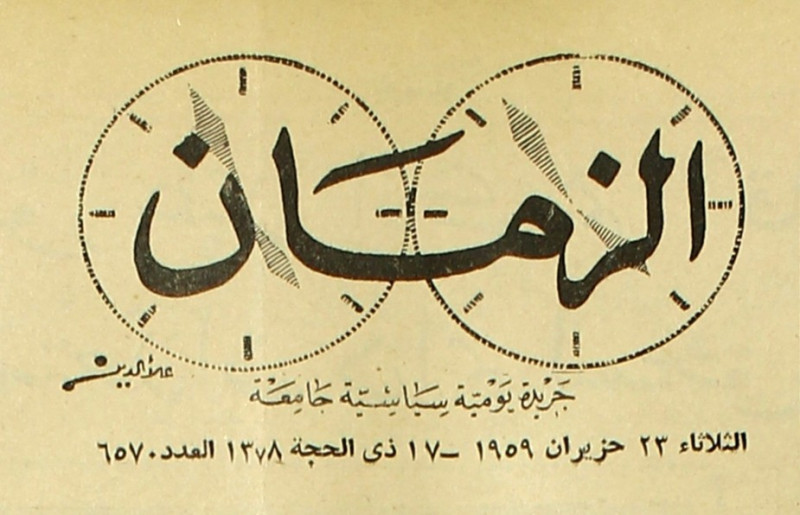 الزمان
علاء الدين
جريدة يومية سياسية جامعة
الثلاثاء ٢٣ حزيران ١٩٥٩ – ١٧ ذى الحجة ١٣٧٨ العدد ٦٥٧٠